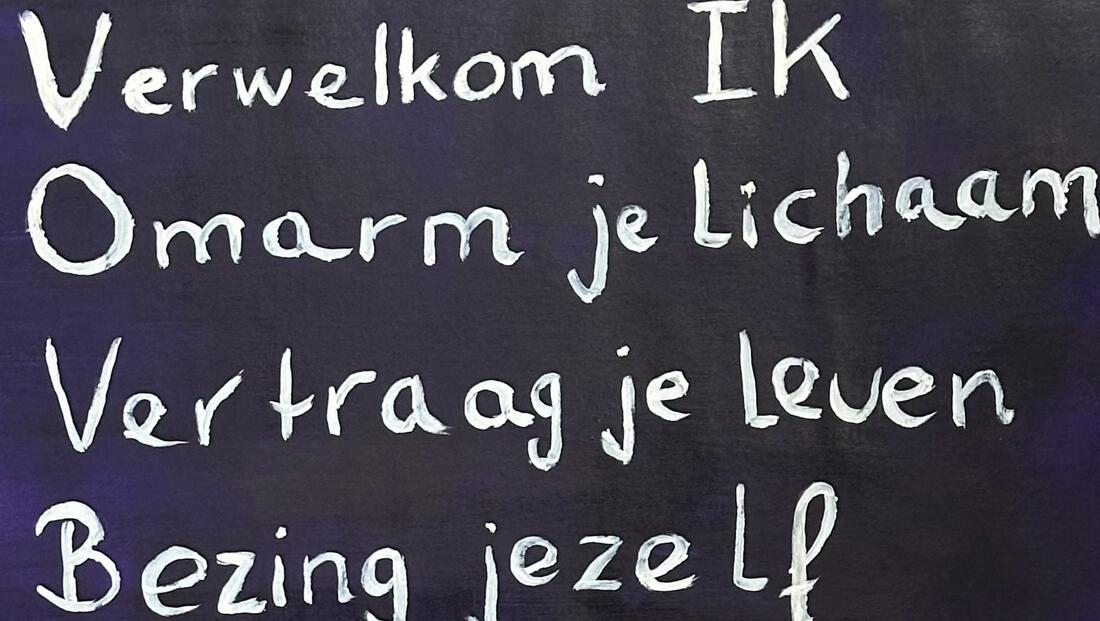 Verwelkom IK
Omarm je lichaam
Vertraag je leven
Bezing jezelf